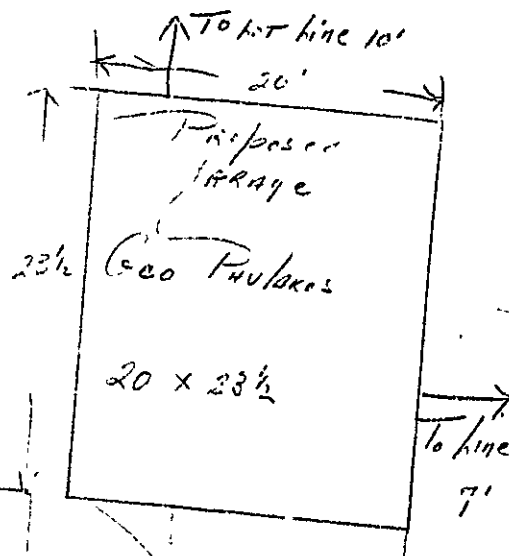 To Lot Line 10'
20'
Proposed
GARAGE
23½
Geo
20 x 23½
To Line
7'